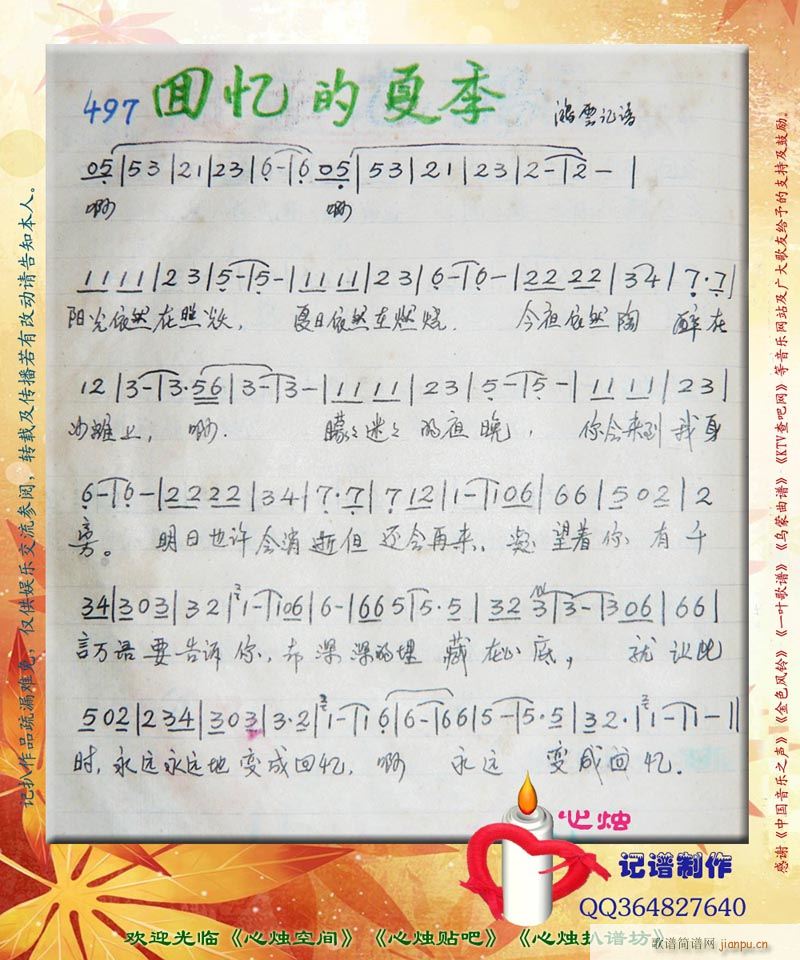 497 回忆的夏季 鴻雲记谱
05|53|21|23|6-|6 05|53|21|23|2-|2-|
啊 啊
1111|23|5-|5-|1111|23|6-|6-|2222|34|7·7|
阳光依然在照耀, 夏日依然在燃烧. 今夜依然陶 醉在
12|3-|3·56|3-|3-|1111|23|5-|5-|1111|23|
沙滩上, 啊. 朦々迷々的夜晚, 你会来到我身
6-|6-|2222|34|7·7|712|1-|106|66|502|2
旁。 明日也许会消逝但还会再来、凝望着你 有千
34|303|32|1-|106|6-|665|5·5|32 3|3-|306|66|
言万语要告诉你、却深深的埋藏在心底, 就让此
502|234|303|3·2|1-|16|6-|66|5-|5·5|32·|1-|1-||
时,永远永远地变成回忆, 啊 永远 变成回忆.
记扒作品疏漏难免，仅供娱乐交流参阅，转载及传播若有改动请告知本人。
感谢《中国音乐之声》《金色风铃》《一叶歌谱》《乌蒙曲谱》《KTV查吧网》等音乐网站及广大歌友给予的支持及鼓励。
心烛
记谱制作
QQ364827640
欢迎光临《心烛空间》《心烛贴吧》《心烛扒谱坊》
歌谱简谱网 jianpu.cn